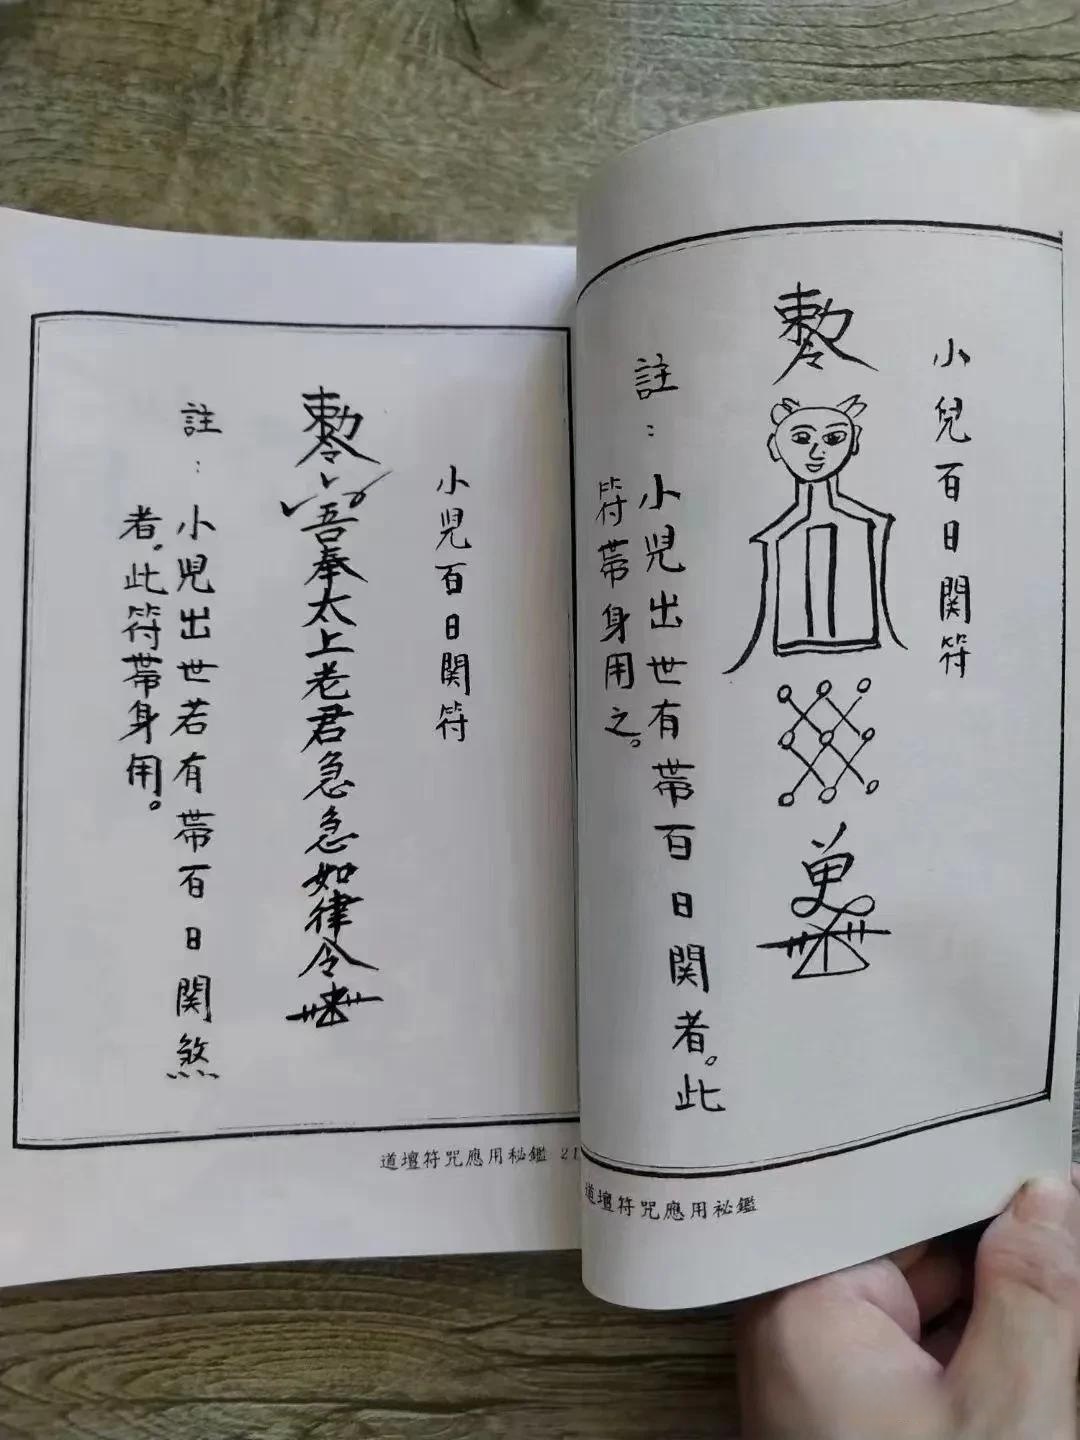 小兒百日関符
敕令
註：小児出世有帯百日関者。此
符帯身用之。
道壇符咒應用祕鑑
小児百日関符
敕令吾奉太上老君急急如律令
註：小児出世若有帯百日関煞
者。此符帯身用。
道壇符咒應用秘鑑 21